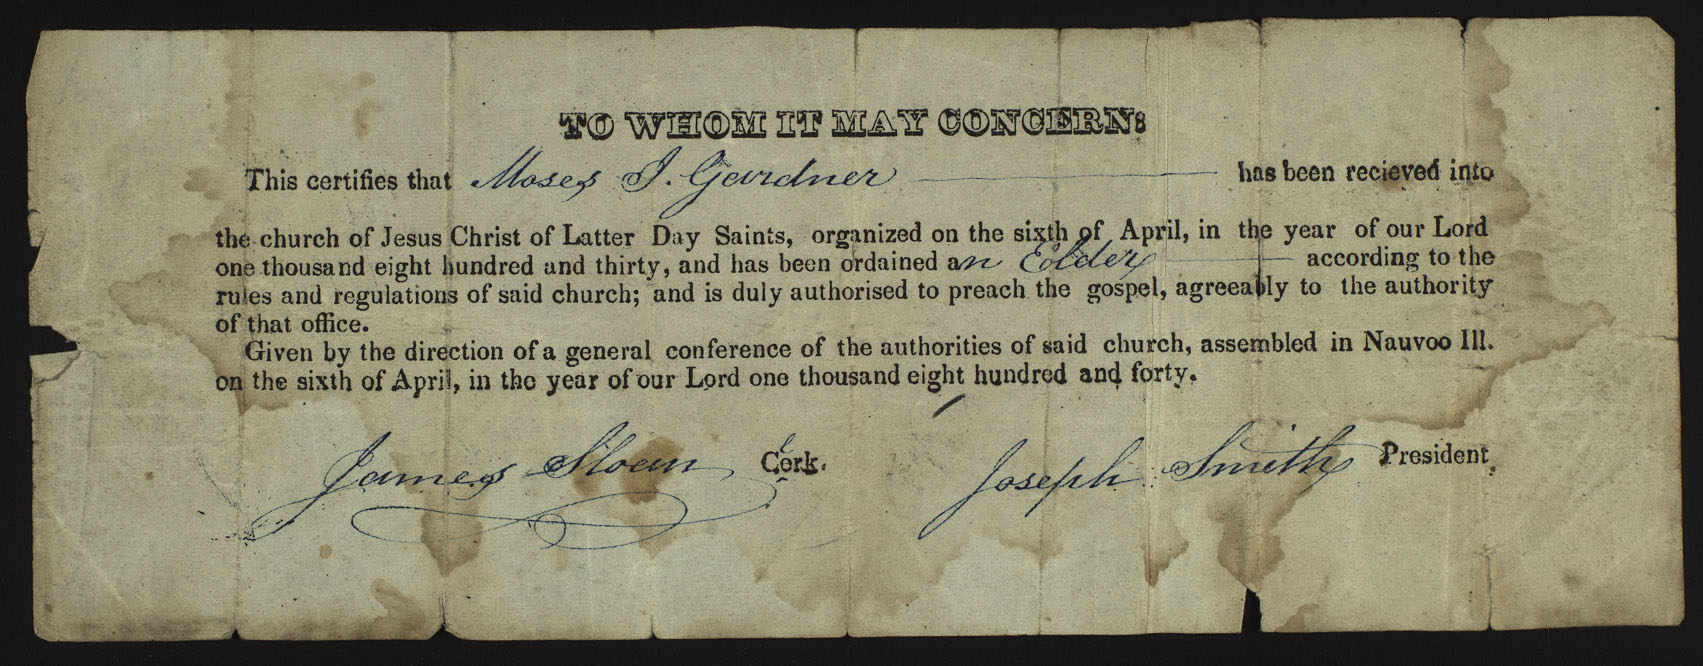 TO WHOM IT MAY CONCERN:
This certifies that Moses I. Gardner has been recieved into
the church of Jesus Christ of Latter Day Saints, organized on the sixth of April, in the year of our Lord
one thousand eight hundred and thirty, and has been ordained an Eolder according to the
rules and regulations of said church; and is duly authorised to preach the gospel, agreeably to the authority
of that office.
Given by the direction of a general conference of the authorities of said church, assembled in Nauvoo Ill.
on the sixth of April, in the year of our Lord one thousand eight hundred and forty.
James Sloan Clerk. Joseph Smith President.